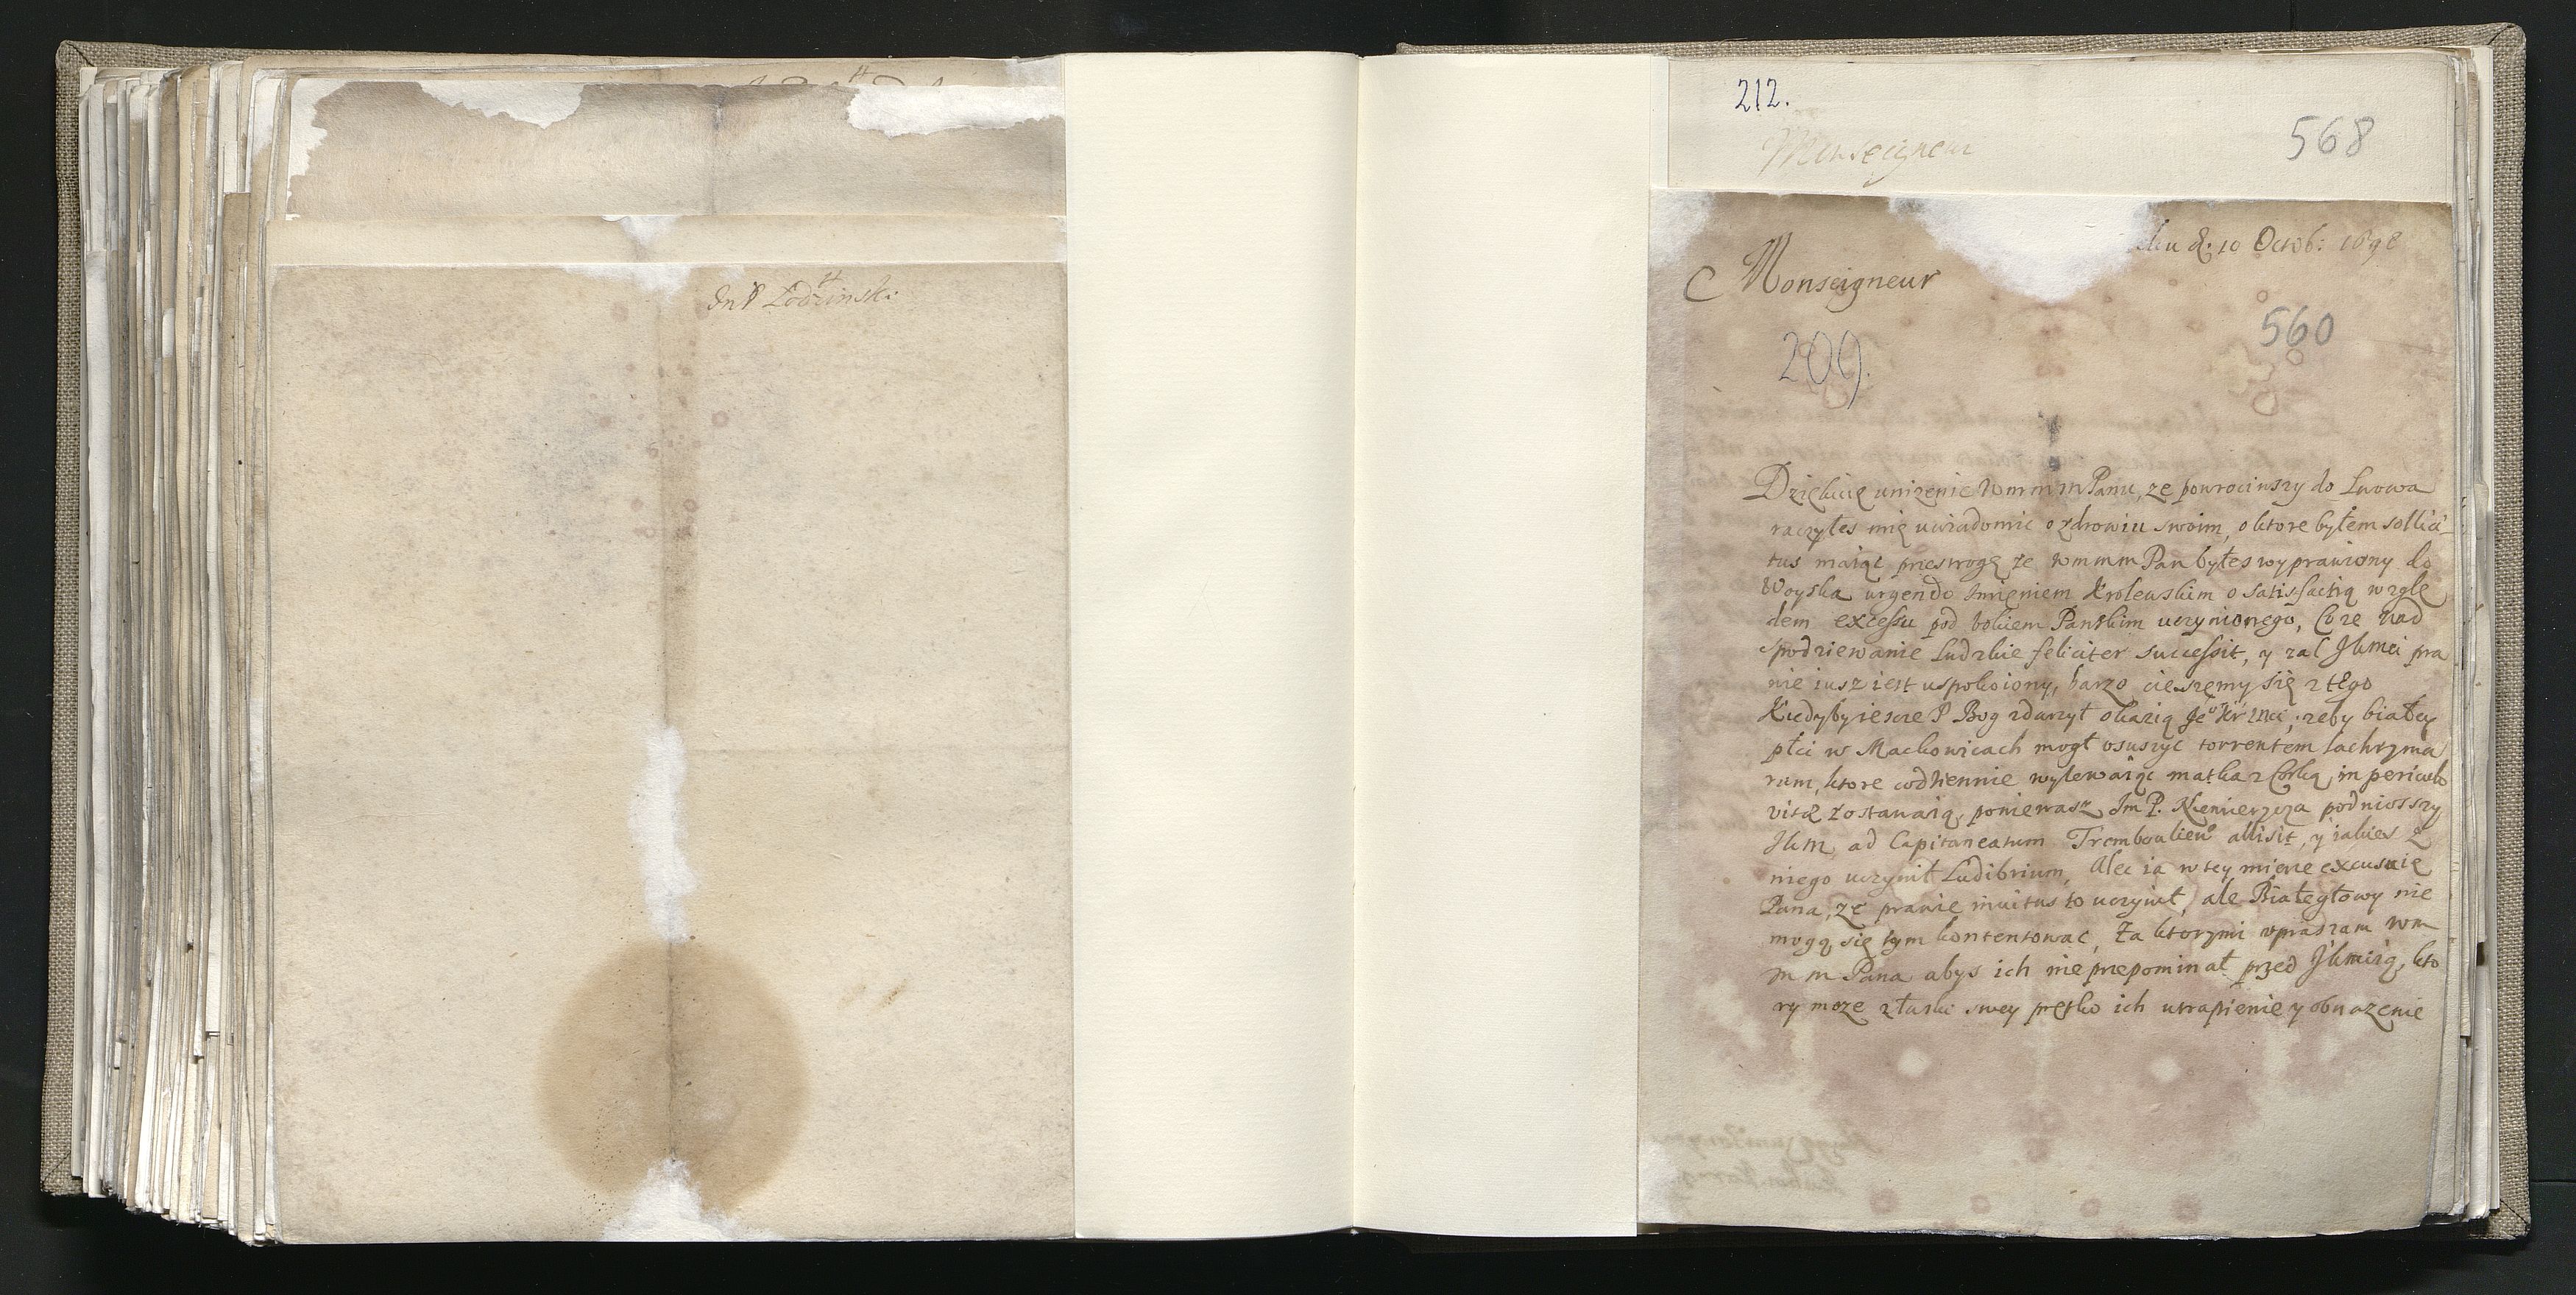 Łodzinski
212.
Monseigneur
568
d. 10 Octob: 1698
Monseigneur
560
209.
Dziękuię unizenie Wmmm Panu, ze powrociwszy do Lwowa
raczyłes mię uwiadomic o zdrowiu swoim, o ktore byłem sollici
tus maiąc przestrogę ze wmmm Pan byłes wyprawiony do
Woyska urgendo Imieniem Krolewskim o satisfactią wzglę
dem excessu pod bokiem Panskim uczynionego, Co ze nad
spodziewanie Ludzkie feliciter successit, y zal Jkmci pra
wie iusz iest uspokoiony, barzo cieszemy się z tego
Kiedyby iescze P Bog zdarzył okazią Je° Kr Mci, zeby białey
płci w Mackowicach mogł osuszyc torrentem lachryma
rum, ktore codziennie wylewaiąc matka z Corką, in periculo
vitæ zostawaią, poniewasz Im P. podniosszy
Jkm ad Capitaneatum allisit, y iakies z
niego uczynił Ludibrium, Alec ia w tey mierze excusuię
Pana, ze prawie invitus to uczynił, ale Białegłowy nie
mogą się tym kontentowac, Za ktorymi upraszam wm
m m Pana abys ich nie przepominał przed Jkmcią, kto
ry moze z łaski swey prętko ich utrapienie y obnazenie